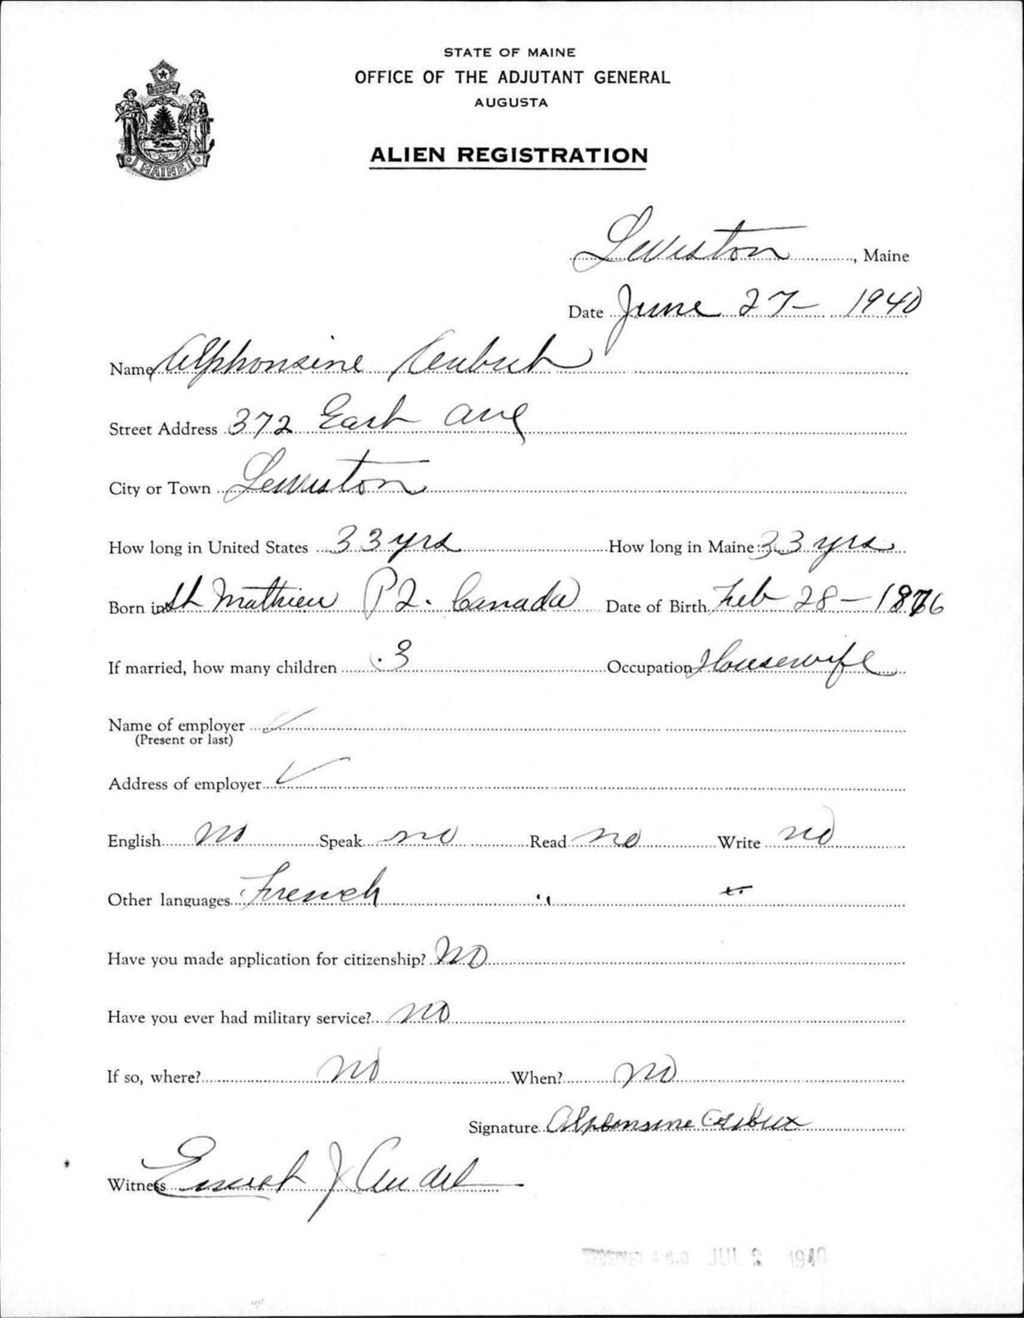 STATE OF MAINE
OFFICE OF THE ADJUTANT GENERAL
AUGUSTA
MAINE
ALIEN REGISTRATION
Lewiston, Maine
Date June 27 - 1940
Name Alphonsine
Street Address 372 East Ave
City or Town Lewiston
How long in United States 33 yrs How long in Maine 33 yrs
Born in St Mathieu P Q. Canada Date of Birth Feb 28 - 1876
If married, how many children 3 Occupation Housewife
Name of employer
(Present or last)
Address of employer
English no Speak no Read no Write no
Other languages French " "
Have you made application for citizenship? No
Have you ever had military service? no
If so, where? no When? no
Signature Alphonsine
Witness Ernest J
RECEIVED A.G.O. JUL 2 1940